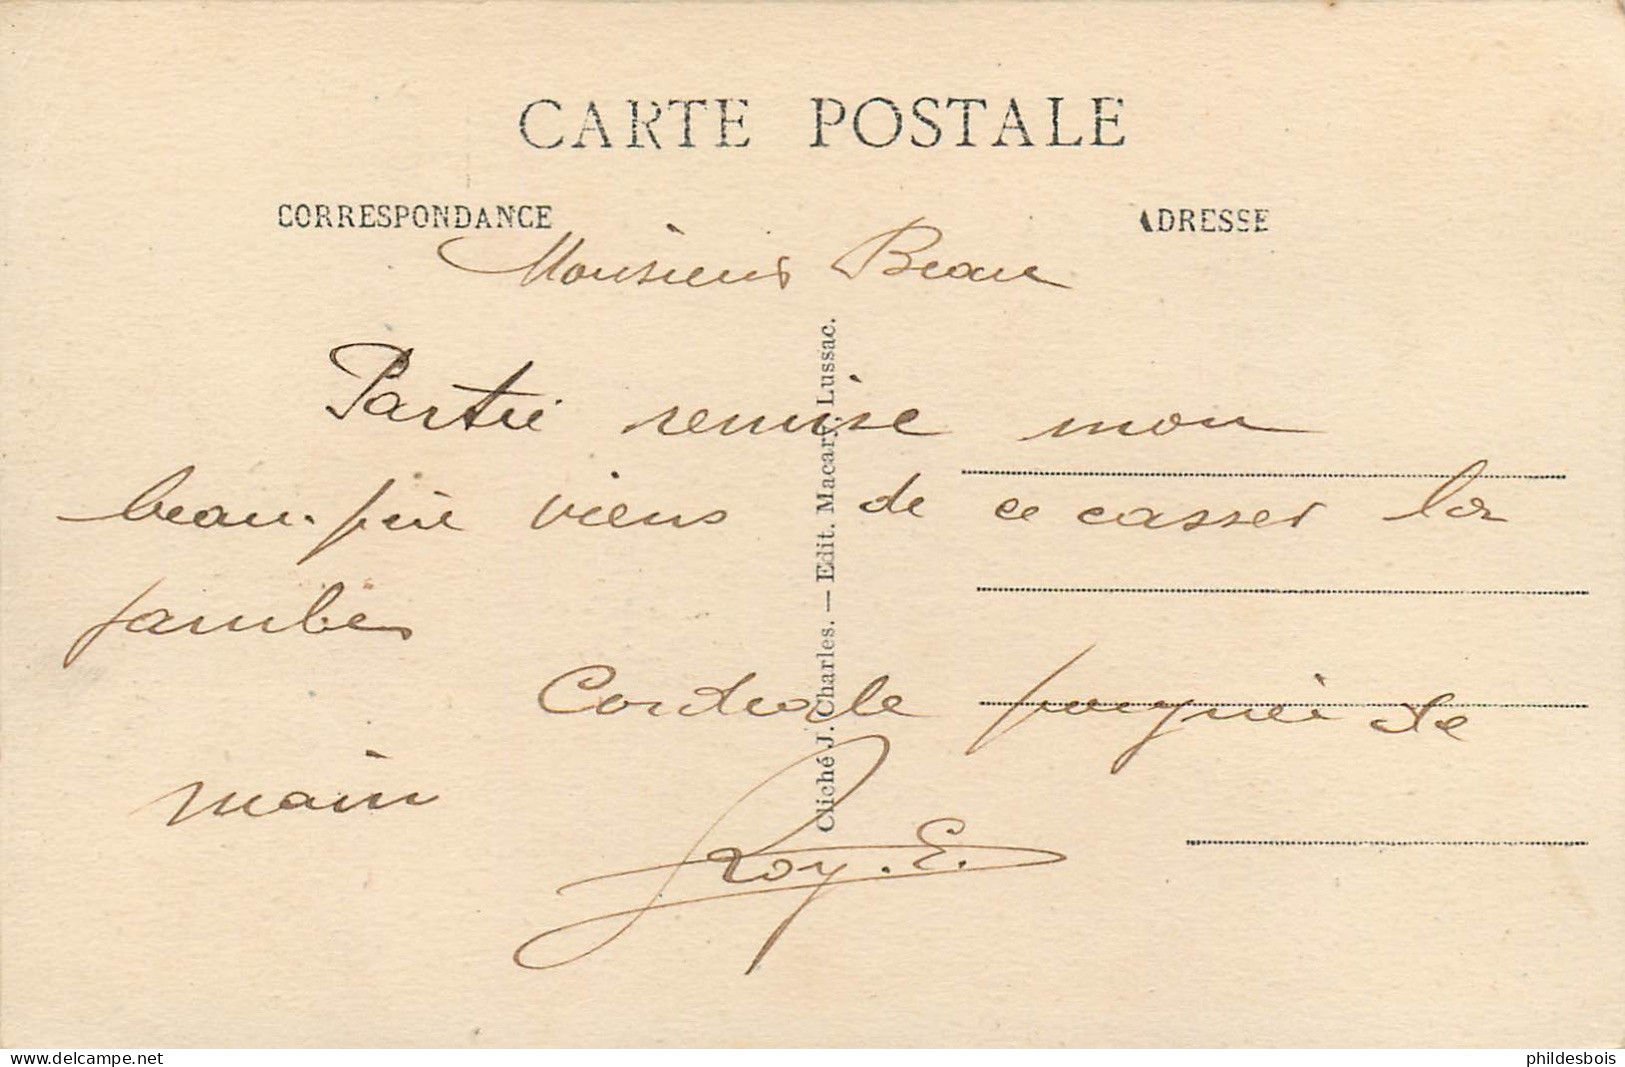 CARTE POSTALE
CORRESPONDANCE
ADRESSE
Monsieur Beau
Partie remise mon
beau-père viens de ce casser la
jambes
Cordiale poignée de
main
Roy. E.
Cliché J. Charles. — Edit. Macary, Lussac.
www.delcampe.net
phildesbois